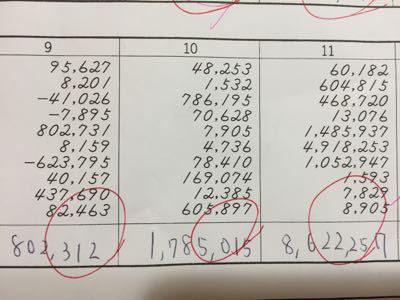 9 10 11
95,627 48,253 60,182
8,201 1,532 604,815
-41,026 786,195 468,720
-7,895 70,628 13,076
802,731 7,905 1,485,937
8,159 4,736 4,918,253
-623,795 78,410 1,052,947
40,157 169,074 1,593
437,690 12,385 7,829
82,463 605,897 8,905
802,312 1,785,015 8,622,257